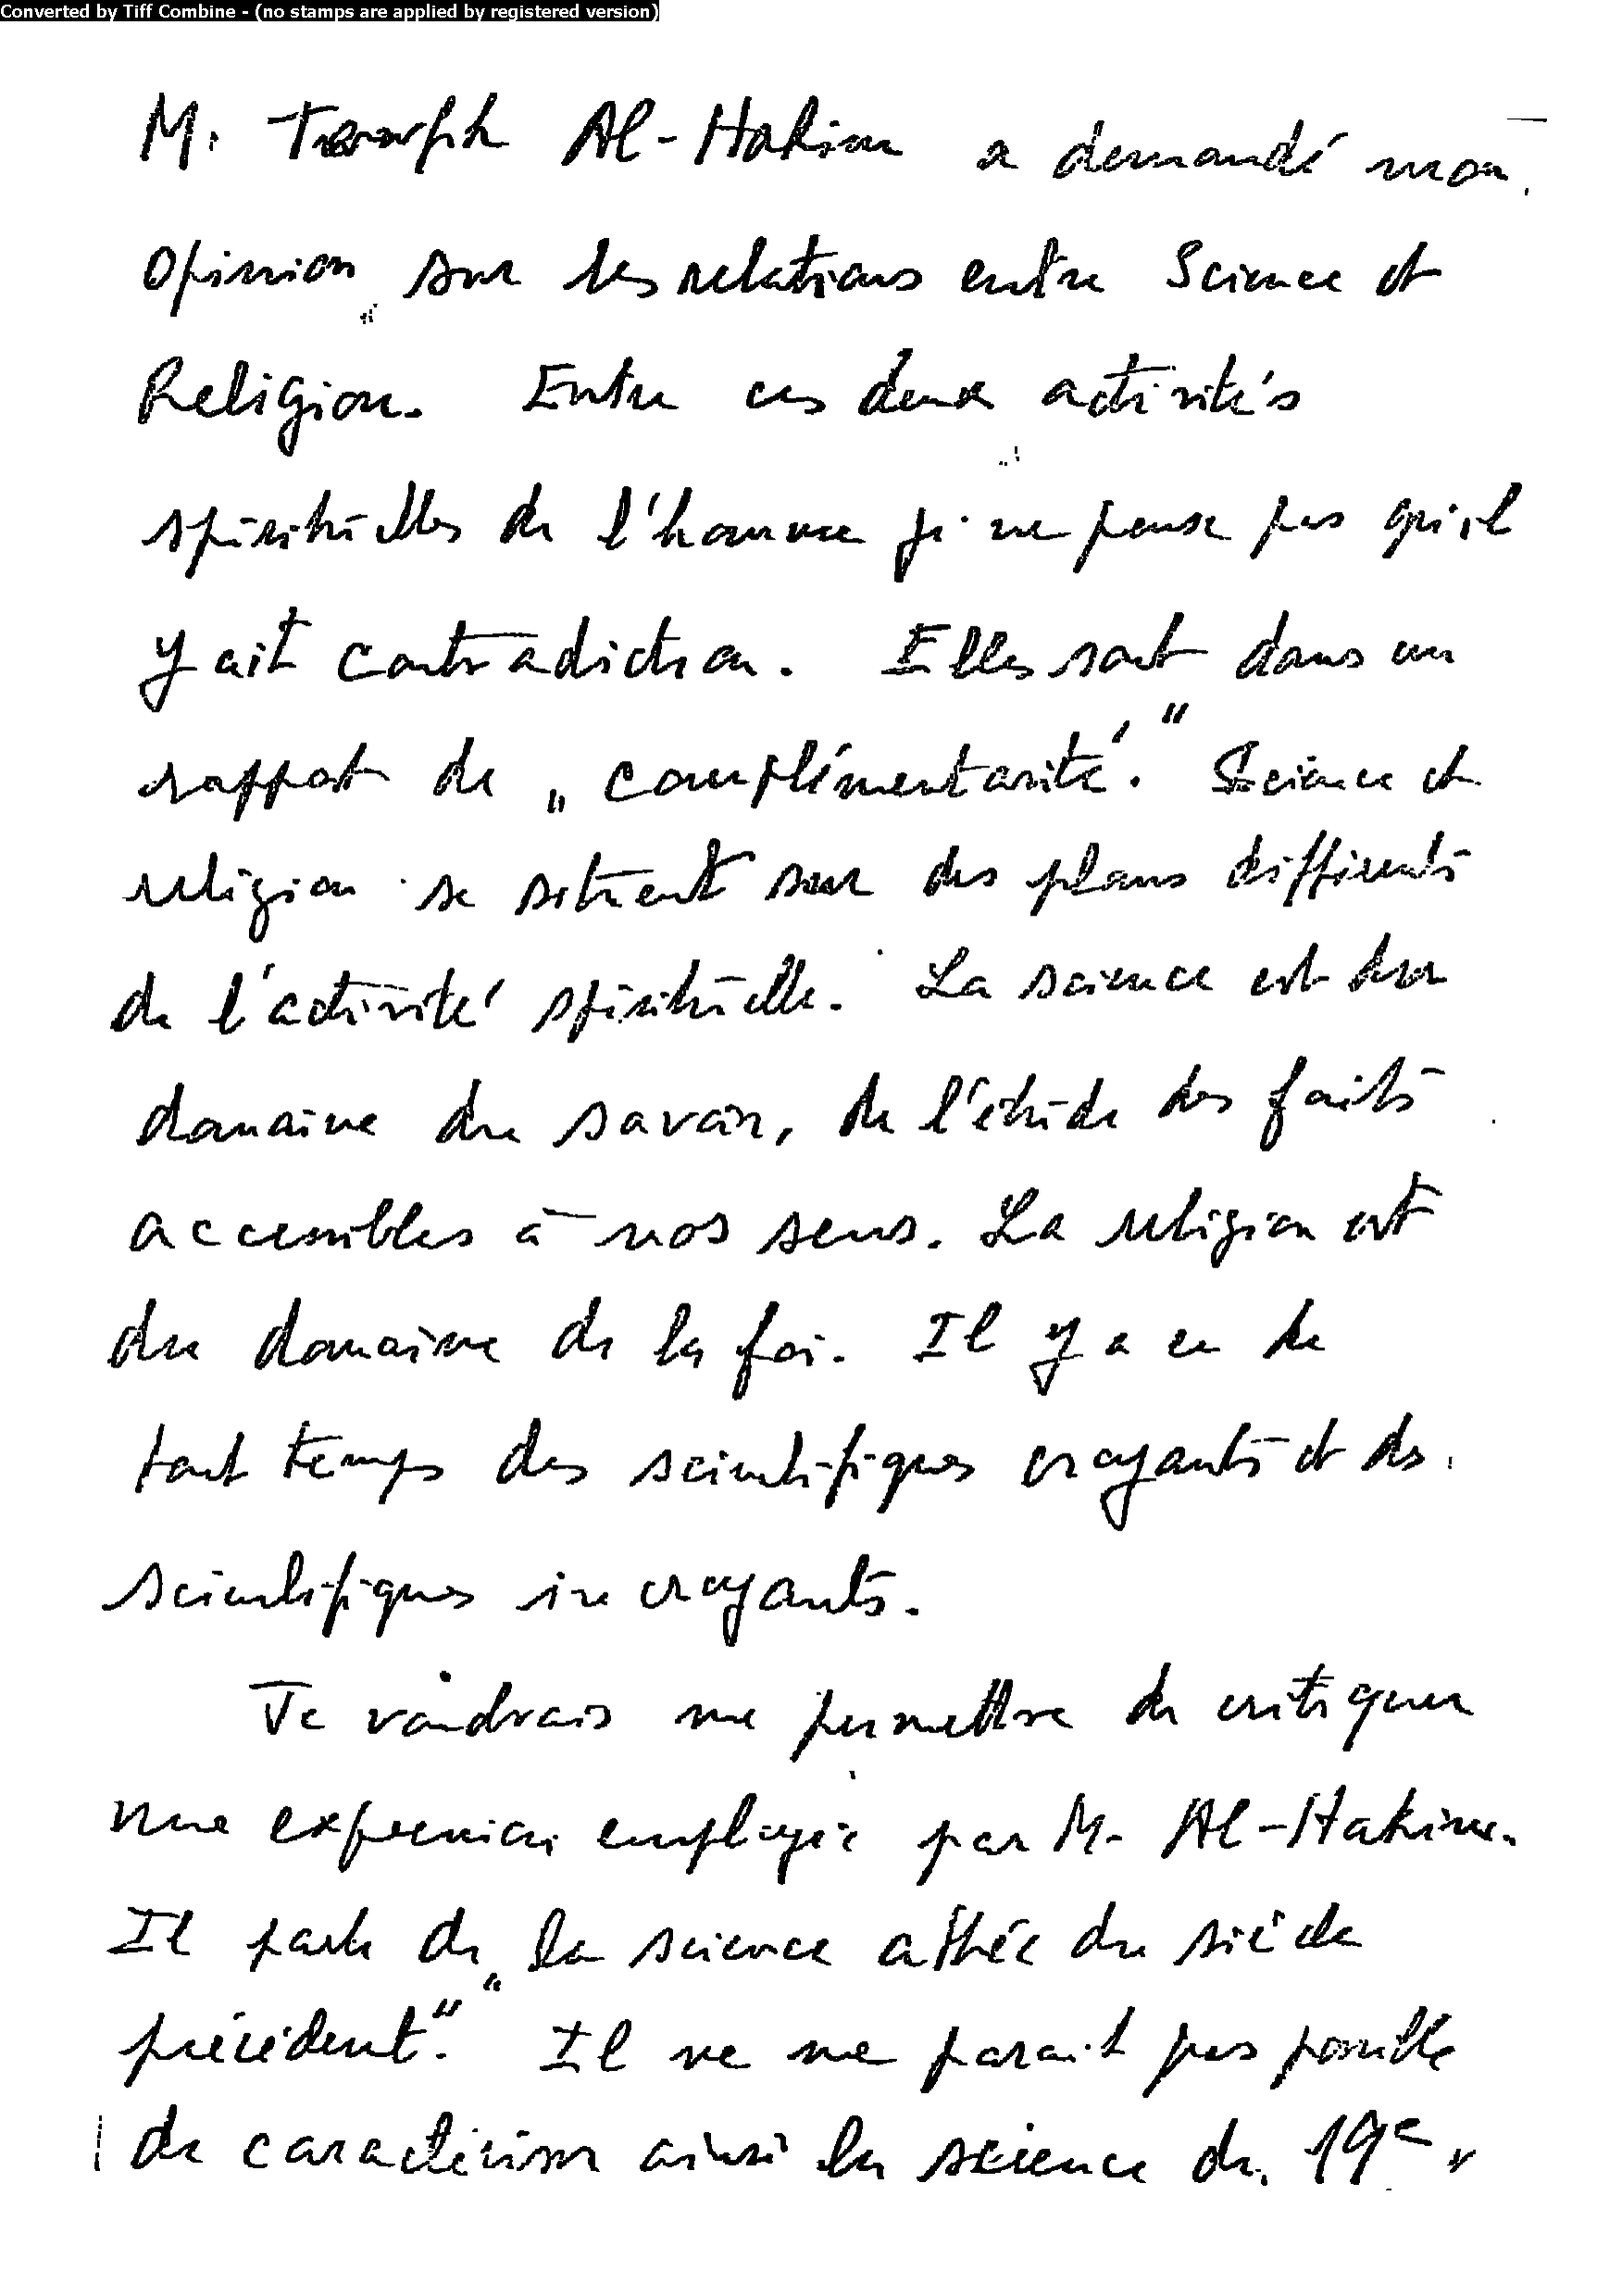 Converted by Tiff Combine - (no stamps are applied by registered version)
M. Tewfik Al-Hakim a demandé mon
opinion sur les relations entre Science et
Religion. Entre ces deux activités
spirituelles de l'homme je ne pense pas qu'il
y ait contradiction. Elles sont dans un
rapport de „complémentarité.” Science et
religion se situent sur des plans différents
de l'activité spirituelle. La science est du
domaine du savoir, de l'étude des faits
accessibles à nos sens. La religion est
du domaine de la foi. Il y a eu de
tout temps des scientifiques croyants et des
scientifiques incroyants.
Je voudrais me permettre de critiquer
une expression employée par M. Al-Hakim.
Il parle de „la science athée du siècle
précédent”. Il ne me parait pas possible
de caractériser ainsi la science du 19e